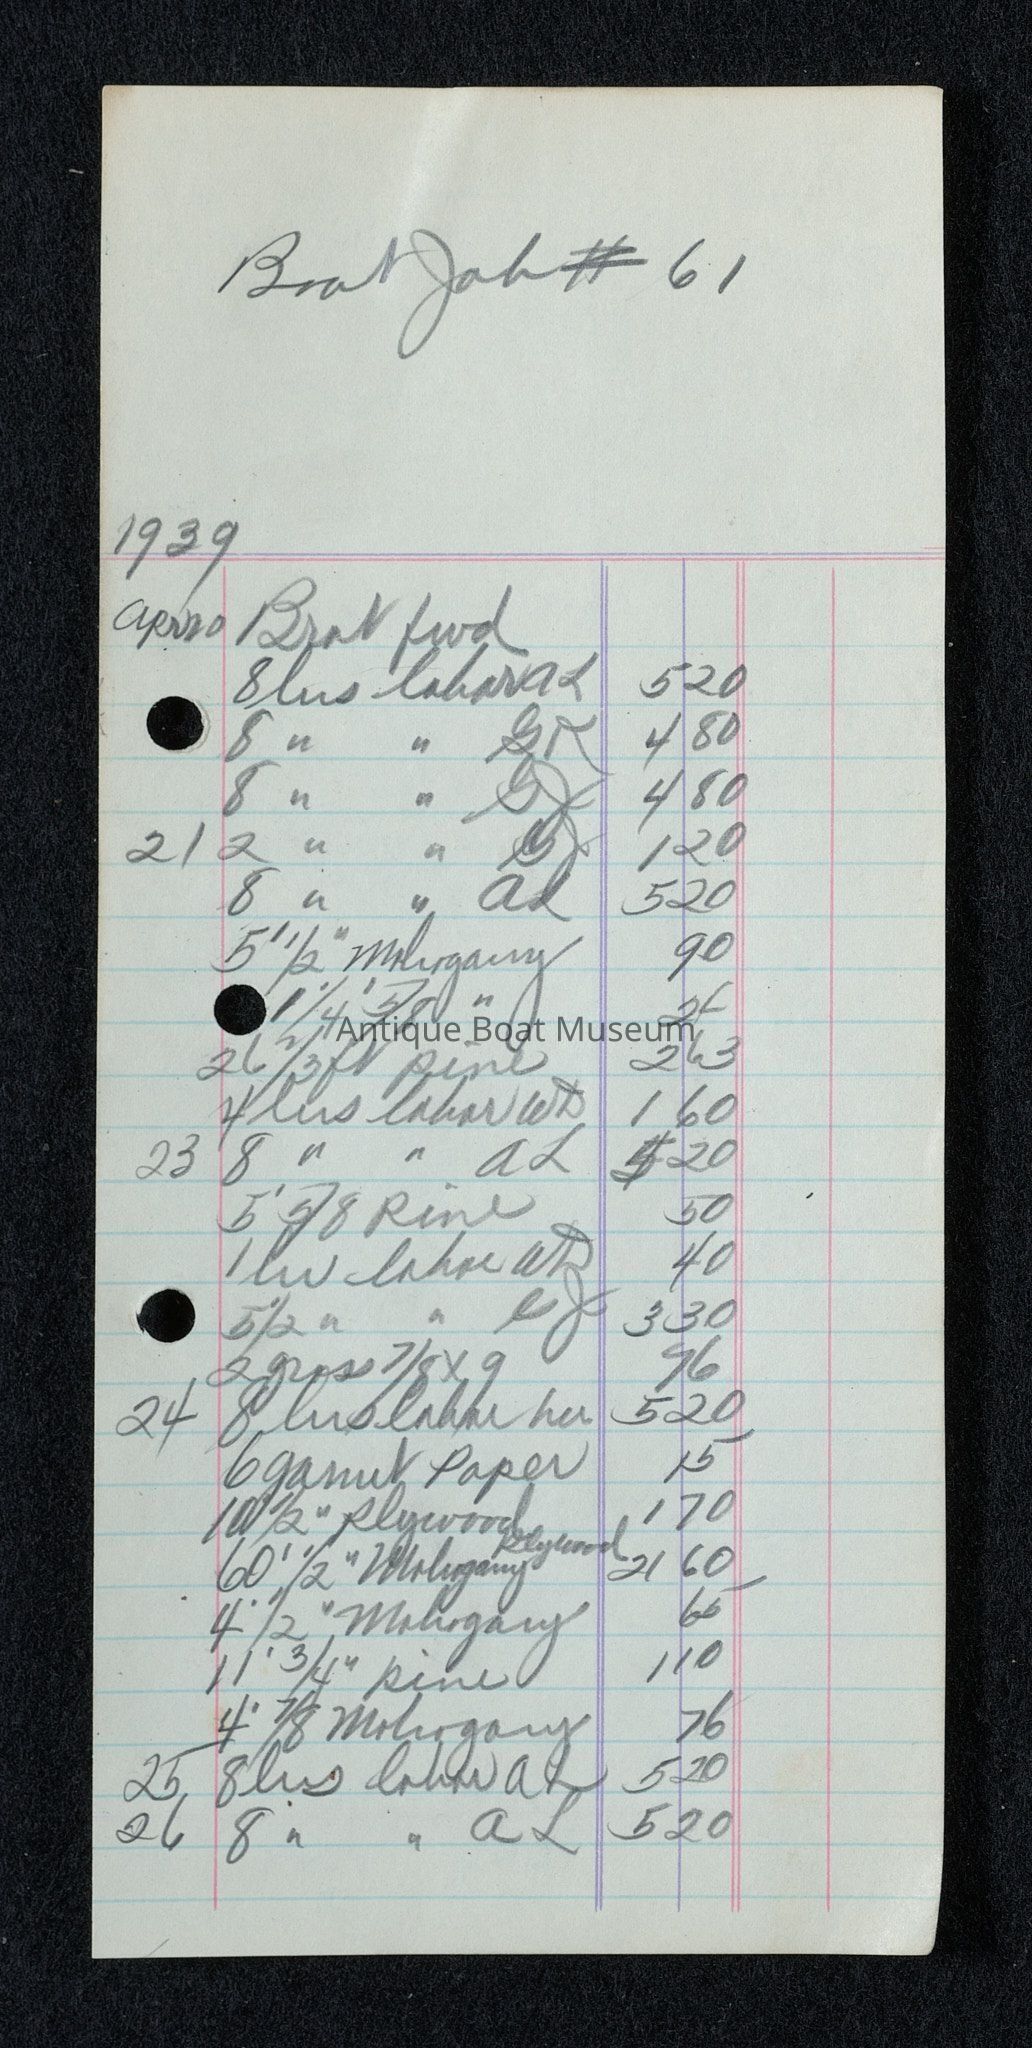 Boat Job # 61
1939
Apr 20 Brot fwd
8 hrs labor AL 5 20
8 " " GR 4 80
8 " " GJ 4 80
21 2 " " GJ 1 20
8 " " AL 5 20
5' 1/2" Mahogany 90
1 1/4' 5/8 "
Antique Boat Museum
26 2/3 ft pine 2 63
4 hrs labor WD 1 60
23 8 " " AL 5 20
5' 5/8 pine 50
1 hr labor WD 40
5 1/2 " " GJ 3 30
2 gross 7/8 x 9 96
24 8 hrs labor 5 20
6 garnet paper 15
10' 1/2" plywood 1 70
plywood
60' 1/2" Mahogany 21 60
4' 1/2" Mahogany 65
11' 3/4" pine 1 10
4' 7/8 Mahogany 76
25 8 hrs labor AL 5 20
26 8 " " AL 5 20